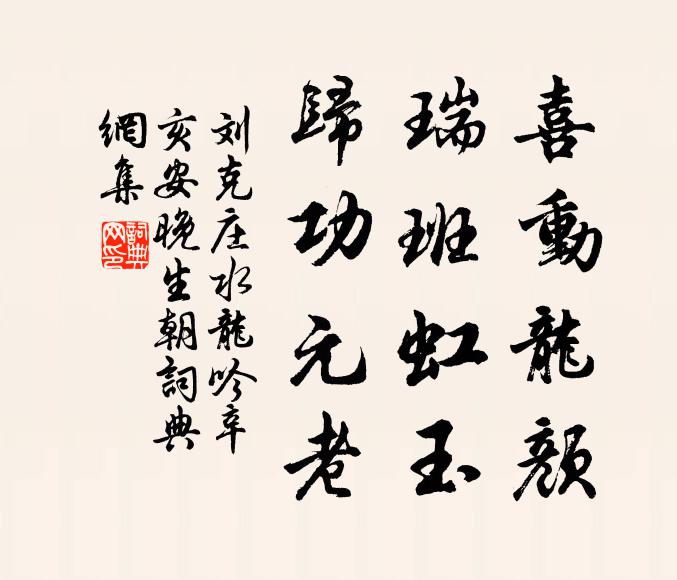 喜動龍顏
瑞班虹玉
歸功元老
刘克庄水龍吟辛
亥安晚生朝詞典
網集
詞典
网印